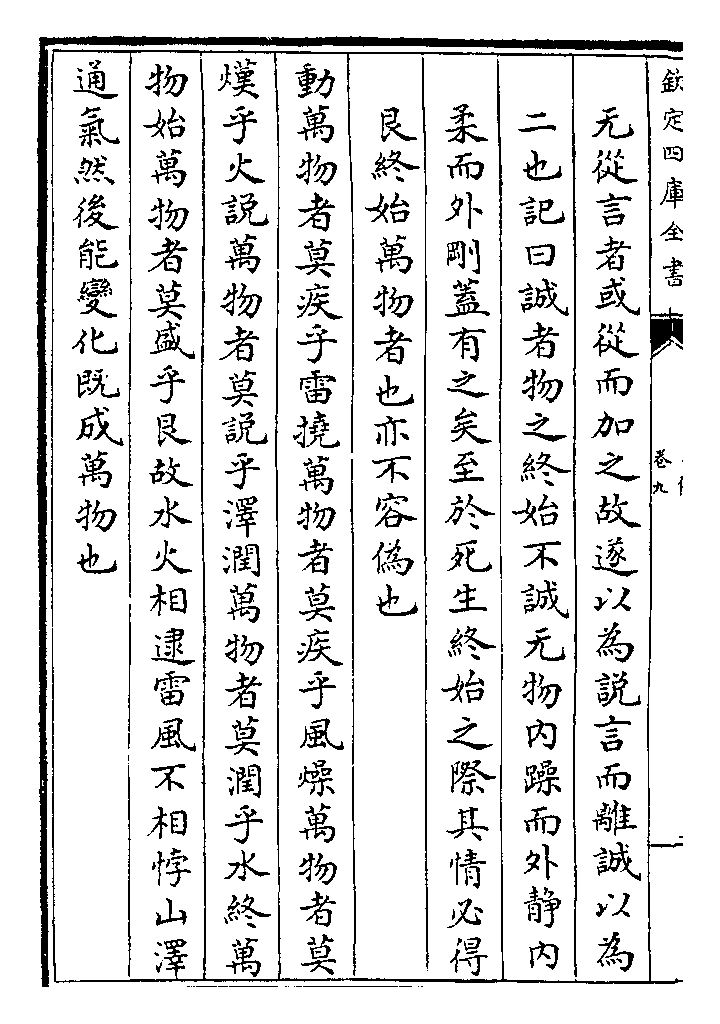 欽定四庫全書
卷九
无從言者或從而加之故遂以為説言而離誠以為
二也記曰誠者物之終始不誠无物内躁而外静内
柔而外剛蓋有之矣至於死生終始之際其情必得
艮終始萬物者也亦不容偽也
動萬物者莫疾乎雷撓萬物者莫疾乎風燥萬物者莫
熯乎火説萬物者莫説乎澤潤萬物者莫潤乎水終萬
物始萬物者莫盛乎艮故水火相逮雷風不相悖山澤
通氣然後能變化既成萬物也